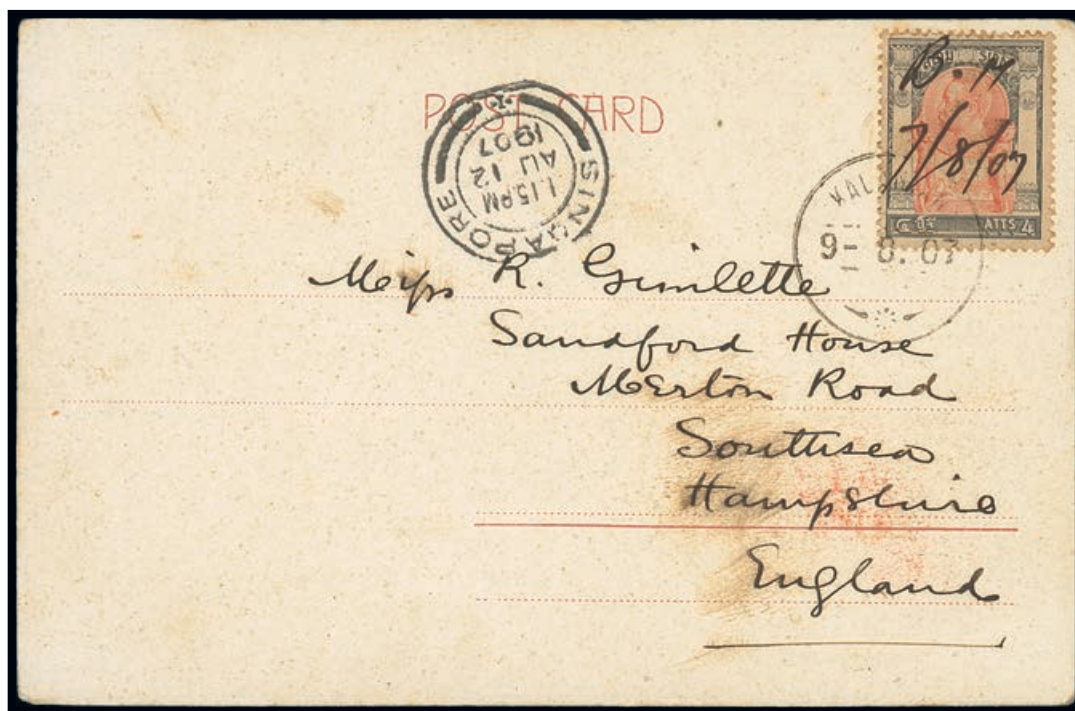 POST CARD
SINGAPORE
1.15 PM
AU 12
1907
B. M
7/8/07
ATTS 4
9- 8. 07
Miss R. Gimlette
Sandford House
Merton Road
Southsea
Hampshire
England